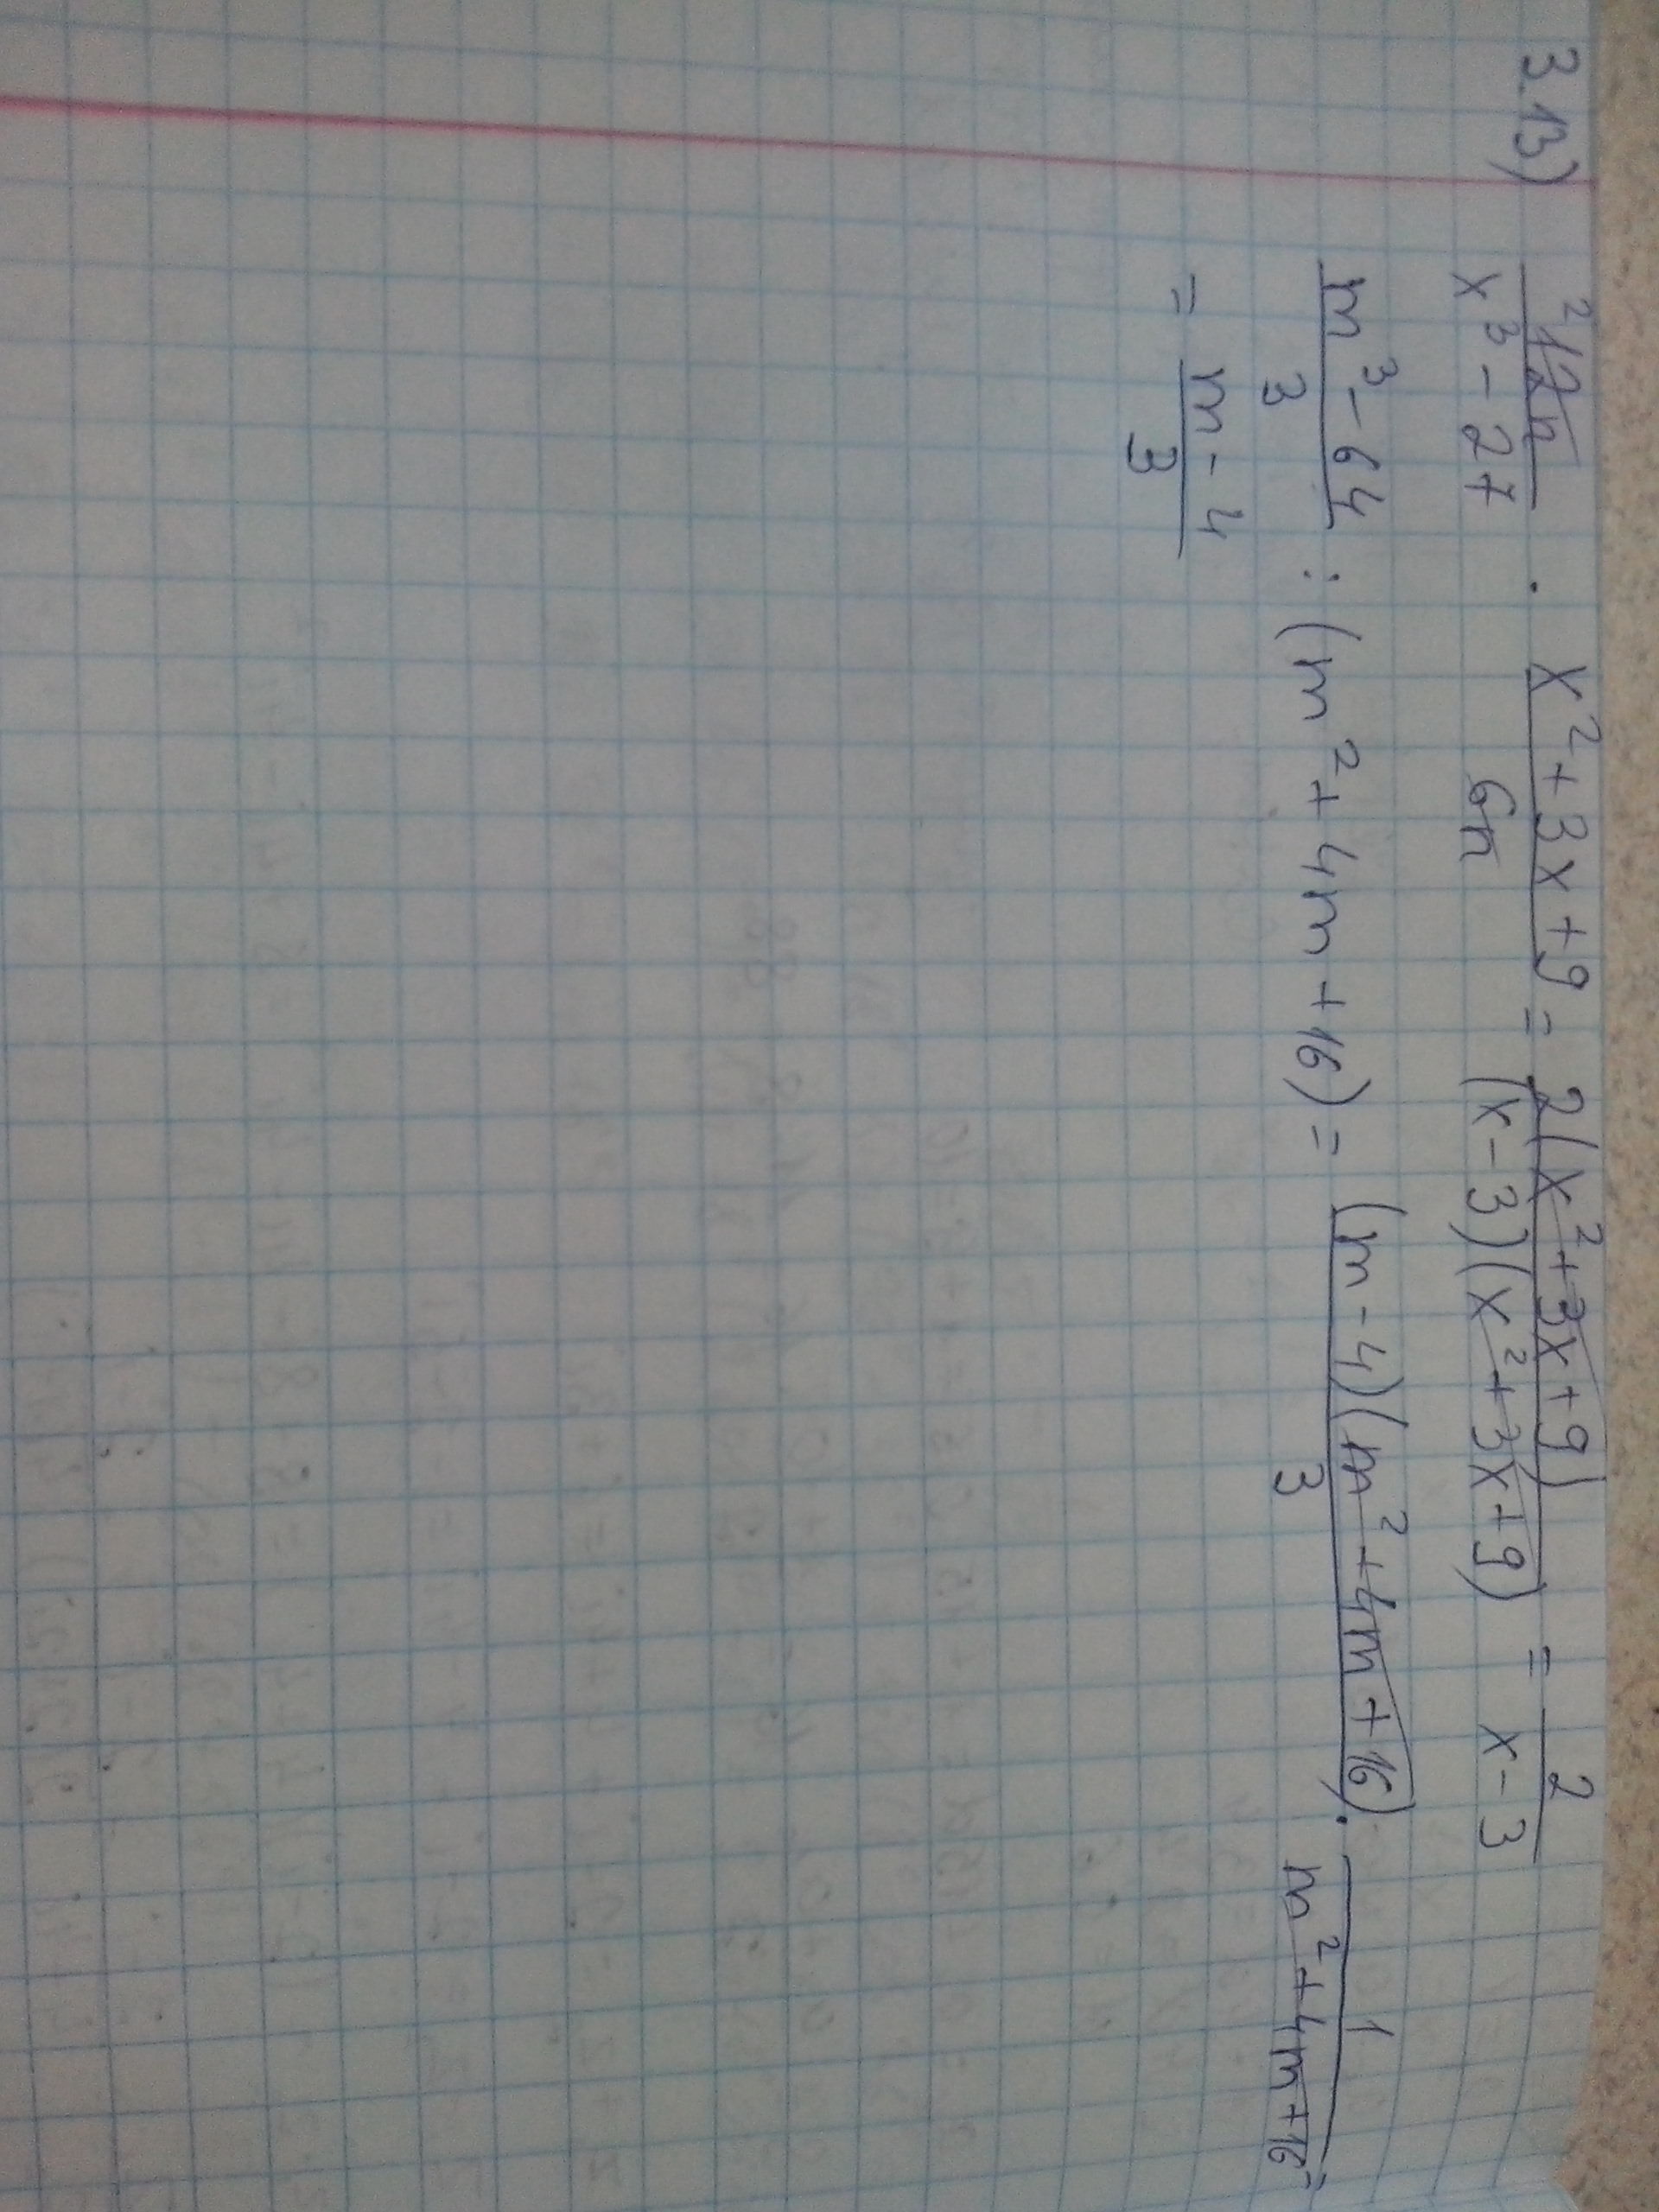 3.13) ²12n/(x³ - 27) · (x² + 3x + 9)/6n = 2(x² + 3x + 9)/((x - 3)(x² + 3x + 9)) = 2/(x - 3)
(m³ - 64)/3 : (m² + 4m + 16) = (m - 4)(m² + 4m + 16)/3 · 1/(m² + 4m + 16) =
= (m - 4)/3